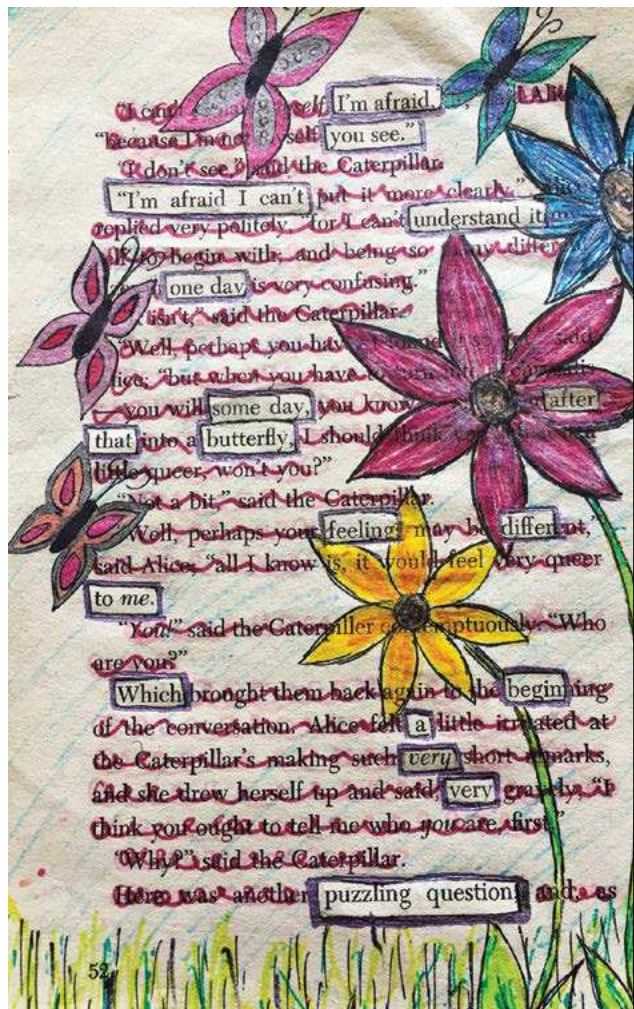 "I can't self, I'm afraid,
"because I'm not you see."
"I don't see," said the Caterpillar.
"I'm afraid I can't put it more clearly,"
replied very politely, "for I can't understand it
to begin with; and being so different
one day is very confusing."
isn't," said the Caterpillar.
"Well, perhaps you have said
"but when you have
you will some day, you know after
that into a butterfly, I should think
little queer, won't you?"
"Not a bit," said the Caterpillar.
"Well, perhaps your feelings may be different,"
said Alice; "all I know is, it would feel very queer
to me."
"You!" said the Caterpiller contemptuously. "Who
are you?"
Which brought them back again to the beginning
of the conversation. Alice felt a little irritated at
the Caterpillar's making such very short remarks,
and she drew herself up and said, very gravely, "I
think you ought to tell me who you are, first."
"Why?" said the Caterpillar.
Here was another puzzling question; and, as
52